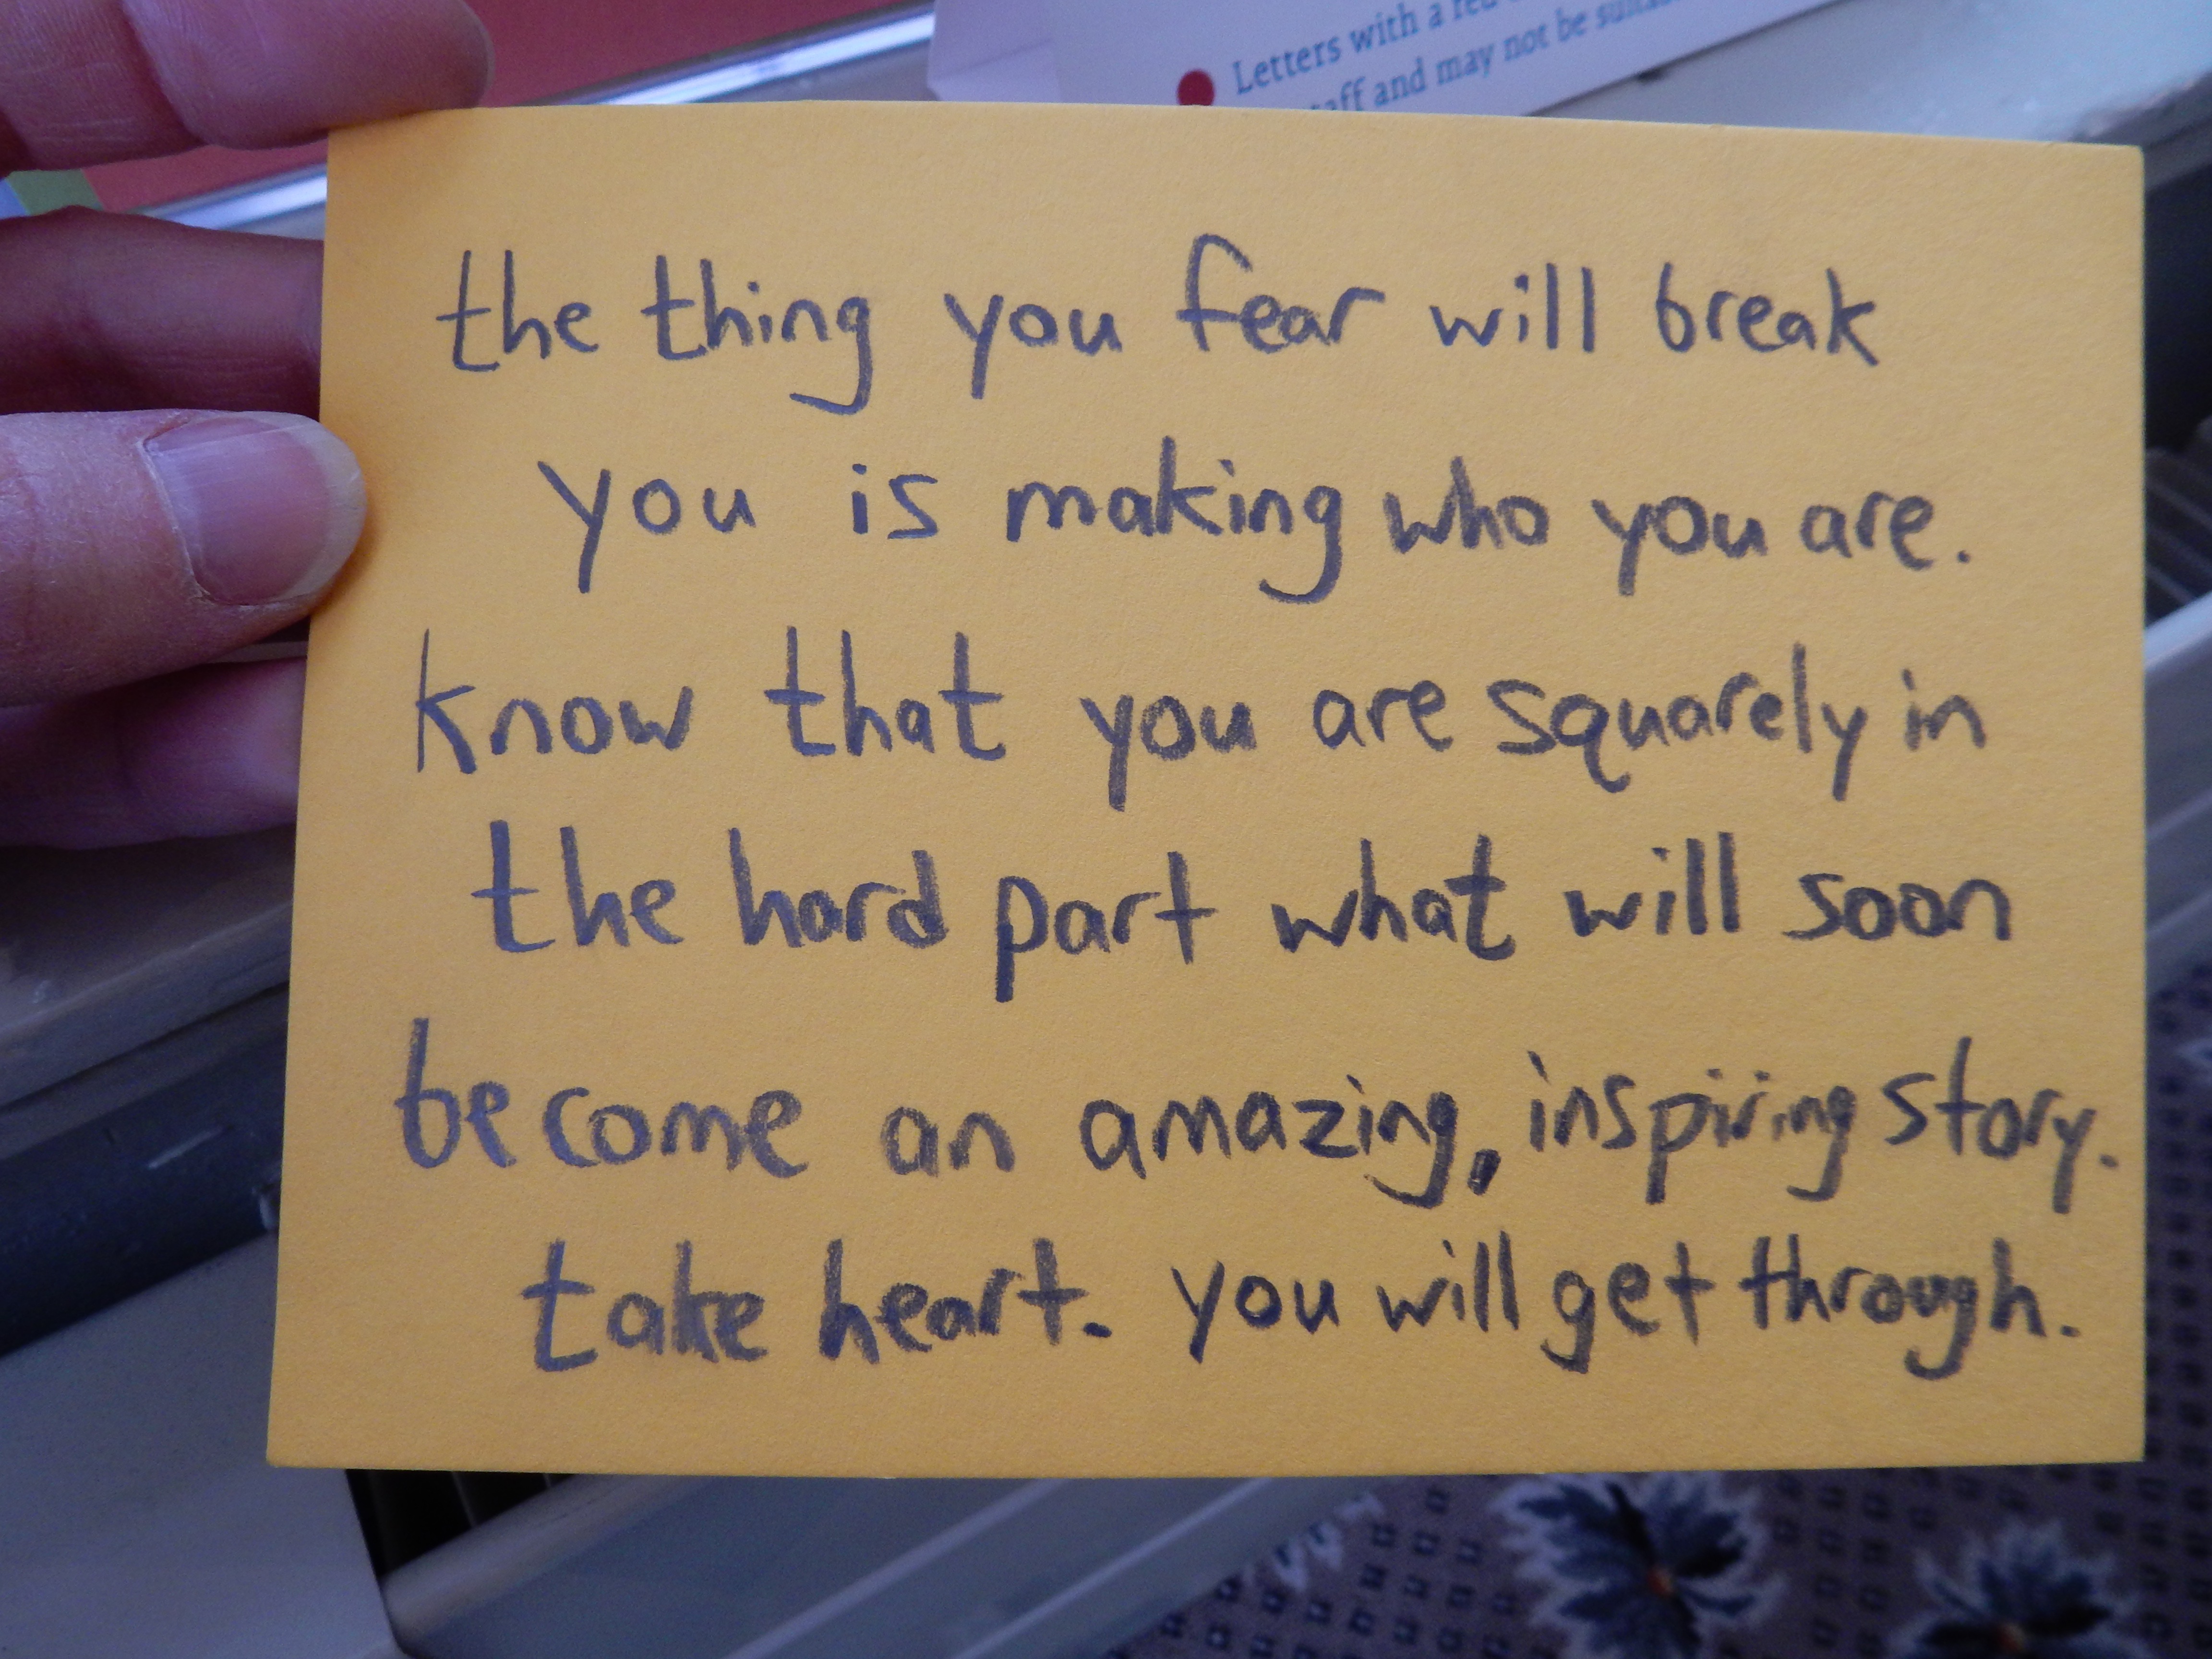 Letters with a red
and may not be
the thing you fear will break
you is making who you are.
know that you are squarely in
the hard part what will soon
become an amazing, inspiring story.
take heart. you will get through.